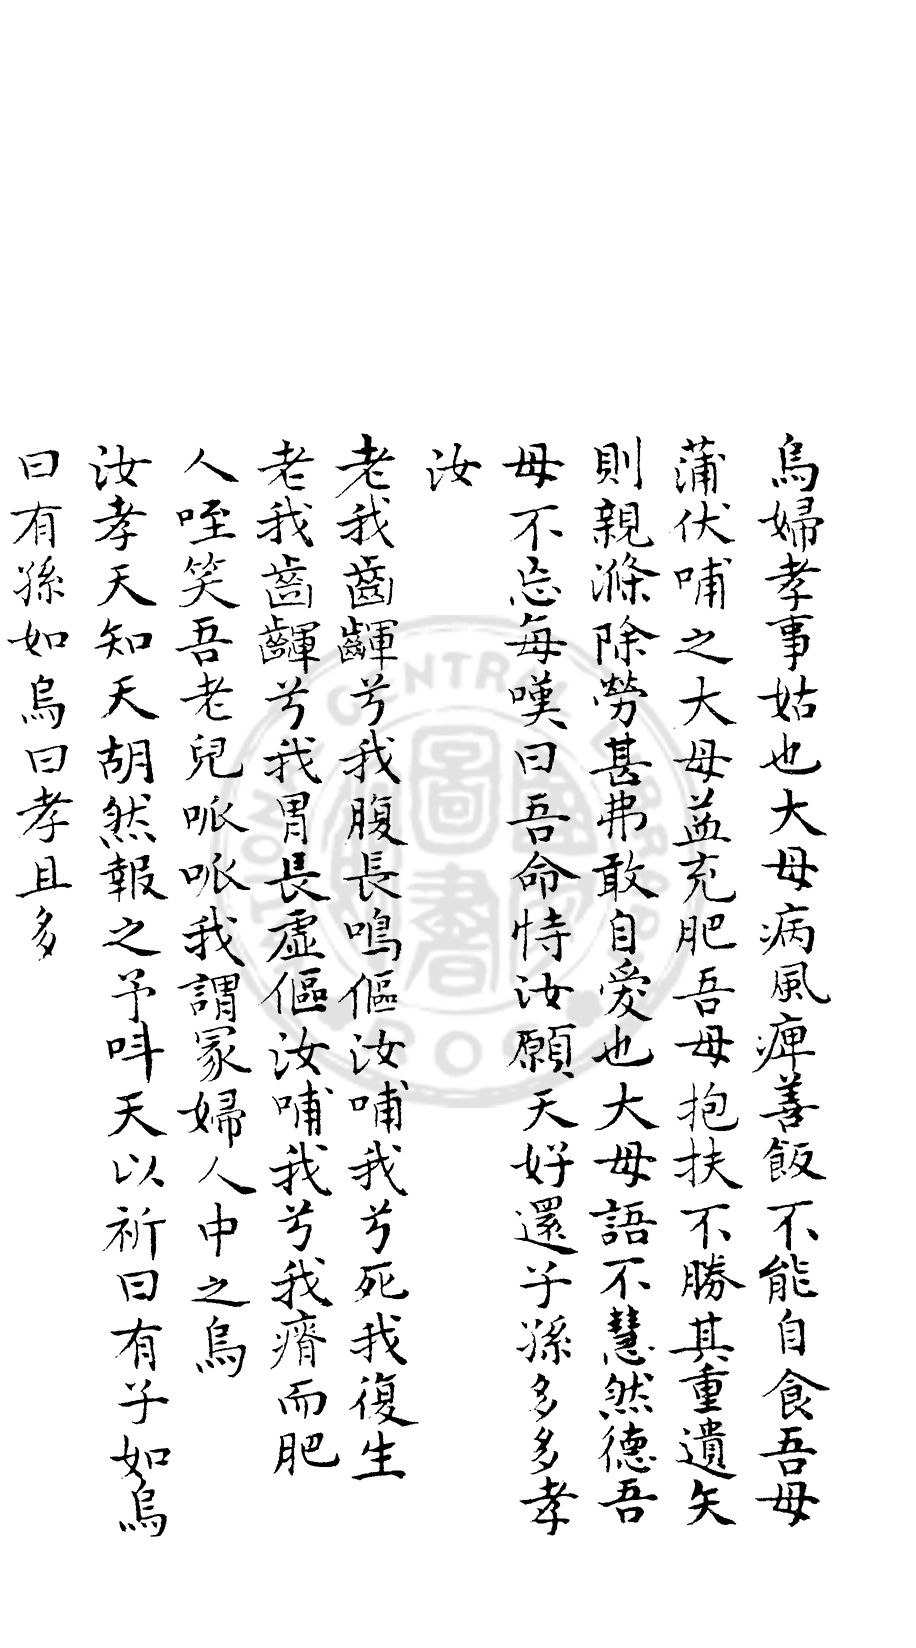 烏婦孝事姑也大母病風痺善飯不能自食吾母
蒲伏哺之大母益充肥吾母抱扶不勝其重遺矢
則親滌除勞甚弗敢自愛也大母語不慧然德吾
母不忘每嘆曰吾命恃汝願天好還子孫多多孝
汝
老我齒齳兮我腹長鳴傴汝哺我兮死我復生
老我齒齳兮我胃長虛傴汝哺我兮我瘠而肥
人咥笑吾老兒哌哌我謂冢婦人中之烏
汝孝天知天胡然報之予呌天以祈曰有子如烏
曰有孫如烏曰孝且多
NATIONAL CENTRAL LIBRARY
國家圖書館